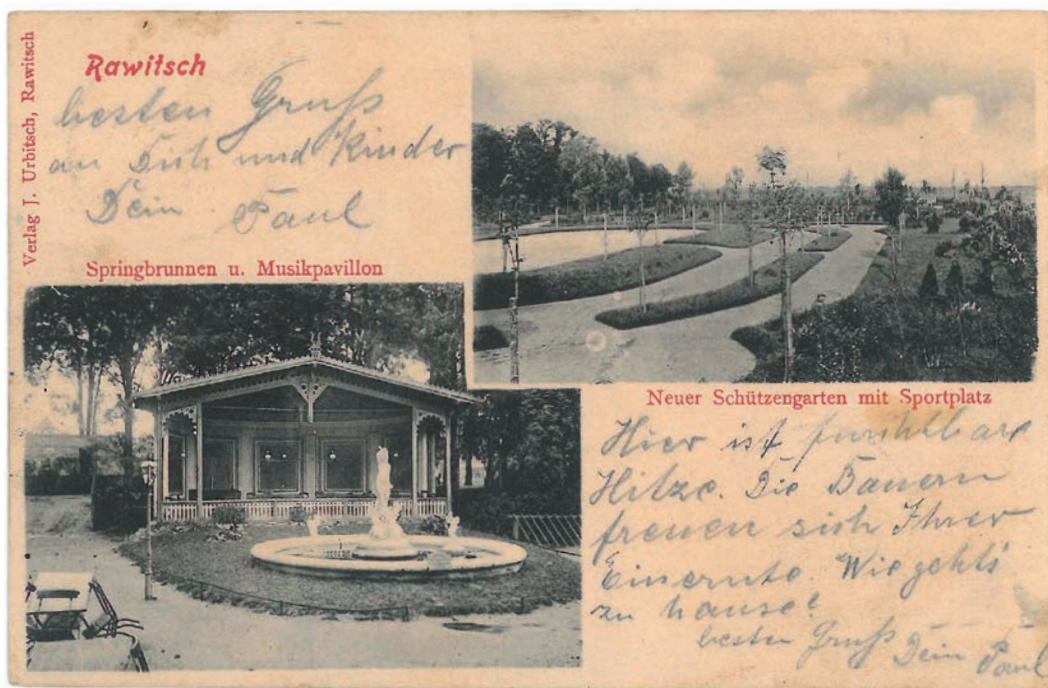 Verlag J. Urbitsch, Rawitsch
Rawitsch
besten Gruß
an Dich und Kinder
Dein Paul
Springbrunnen u. Musikpavillon
Neuer Schützengarten mit Sportplatz
Hier ist furchtbare
Hitze. Die Bauern
freuen sich Ihrer
Einernte. Wie gehts
zu hause?
besten Gruß Dein Paul